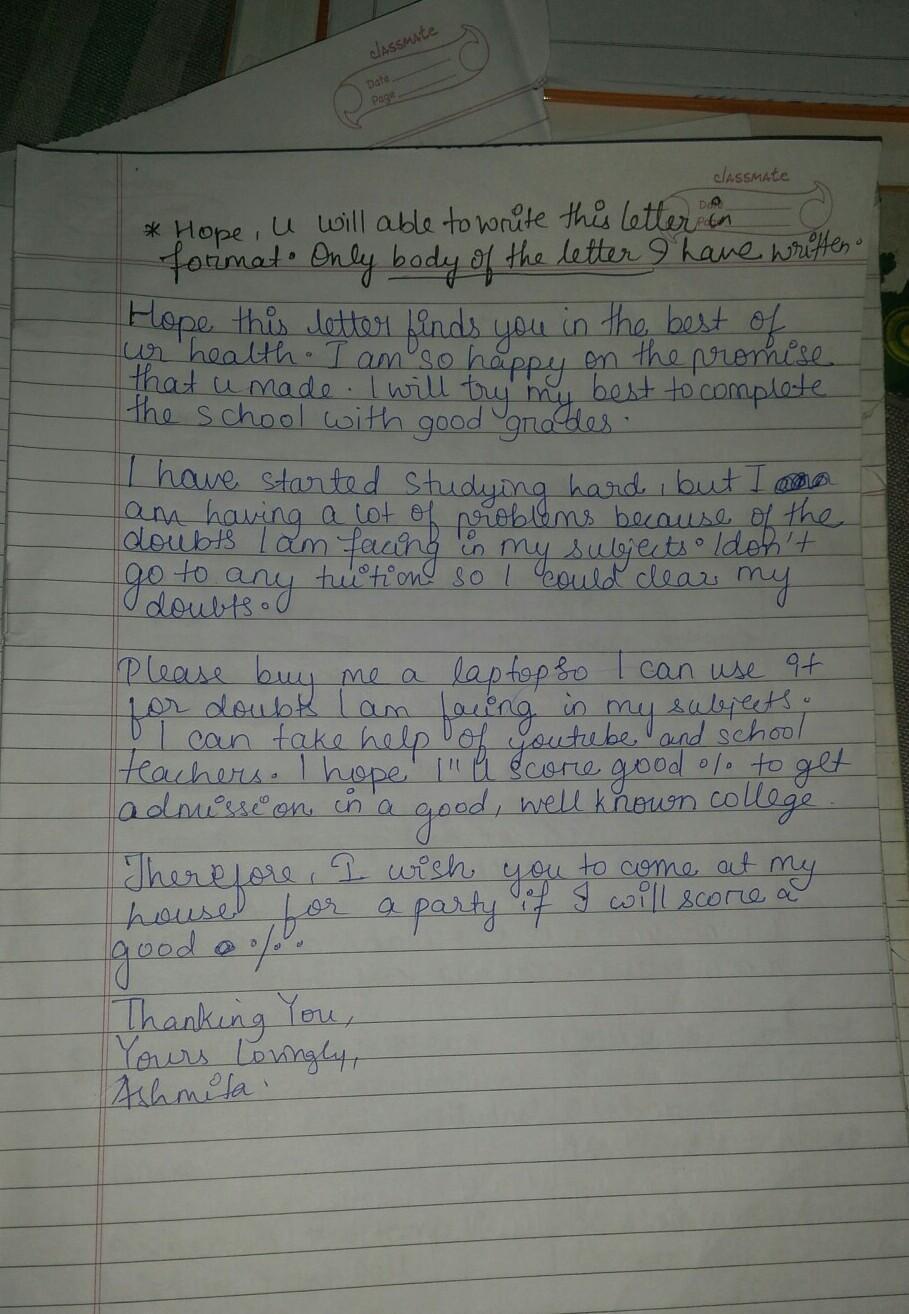 classmate
Date
Page
classmate
Date
* Hope, u will able to write this letter in
format. Only body of the letter I have written.
Hope this letter finds you in the best of
ur health. I am so happy on the promise
that u made. I will try my best to complete
the school with good grades.
I have started studying hard, but I
am having a lot of problems because of the
doubts I am facing in my subjects. I don't
go to any tuition so I could clear my
doubts.
Please buy me a laptop so I can use it
for doubts I am facing in my subjects.
I can take help of youtube and school
teachers. I hope I'll score good % to get
admission in a good, well known college.
Therefore, I wish you to come at my
house for a party if I will score a
good %.
Thanking You,
Yours lovingly,
Ashmita.